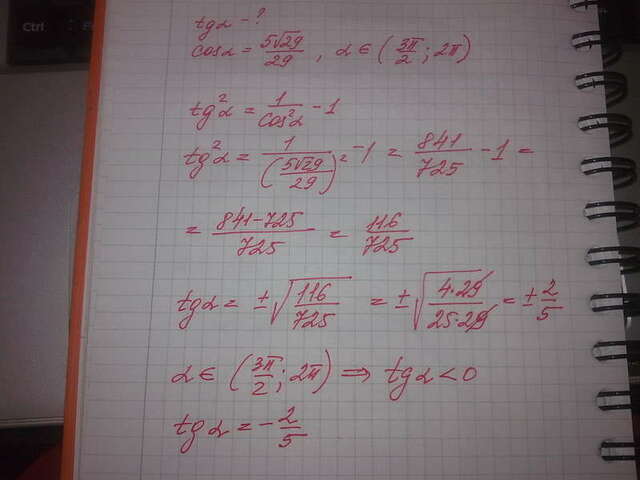 Ctrl
tgα - ?
cosα = 5√29/29 , α ∈ (3π/2 ; 2π)
tg²α = 1/cos²α - 1
tg²α = 1/(5√29/29)² - 1 = 841/725 - 1 =
= (841-725)/725 = 116/725
tgα = ±√(116/725) = ±√(4·29/25·29) = ± 2/5
α ∈ (3π/2 ; 2π) ⇒ tgα < 0
tgα = - 2/5